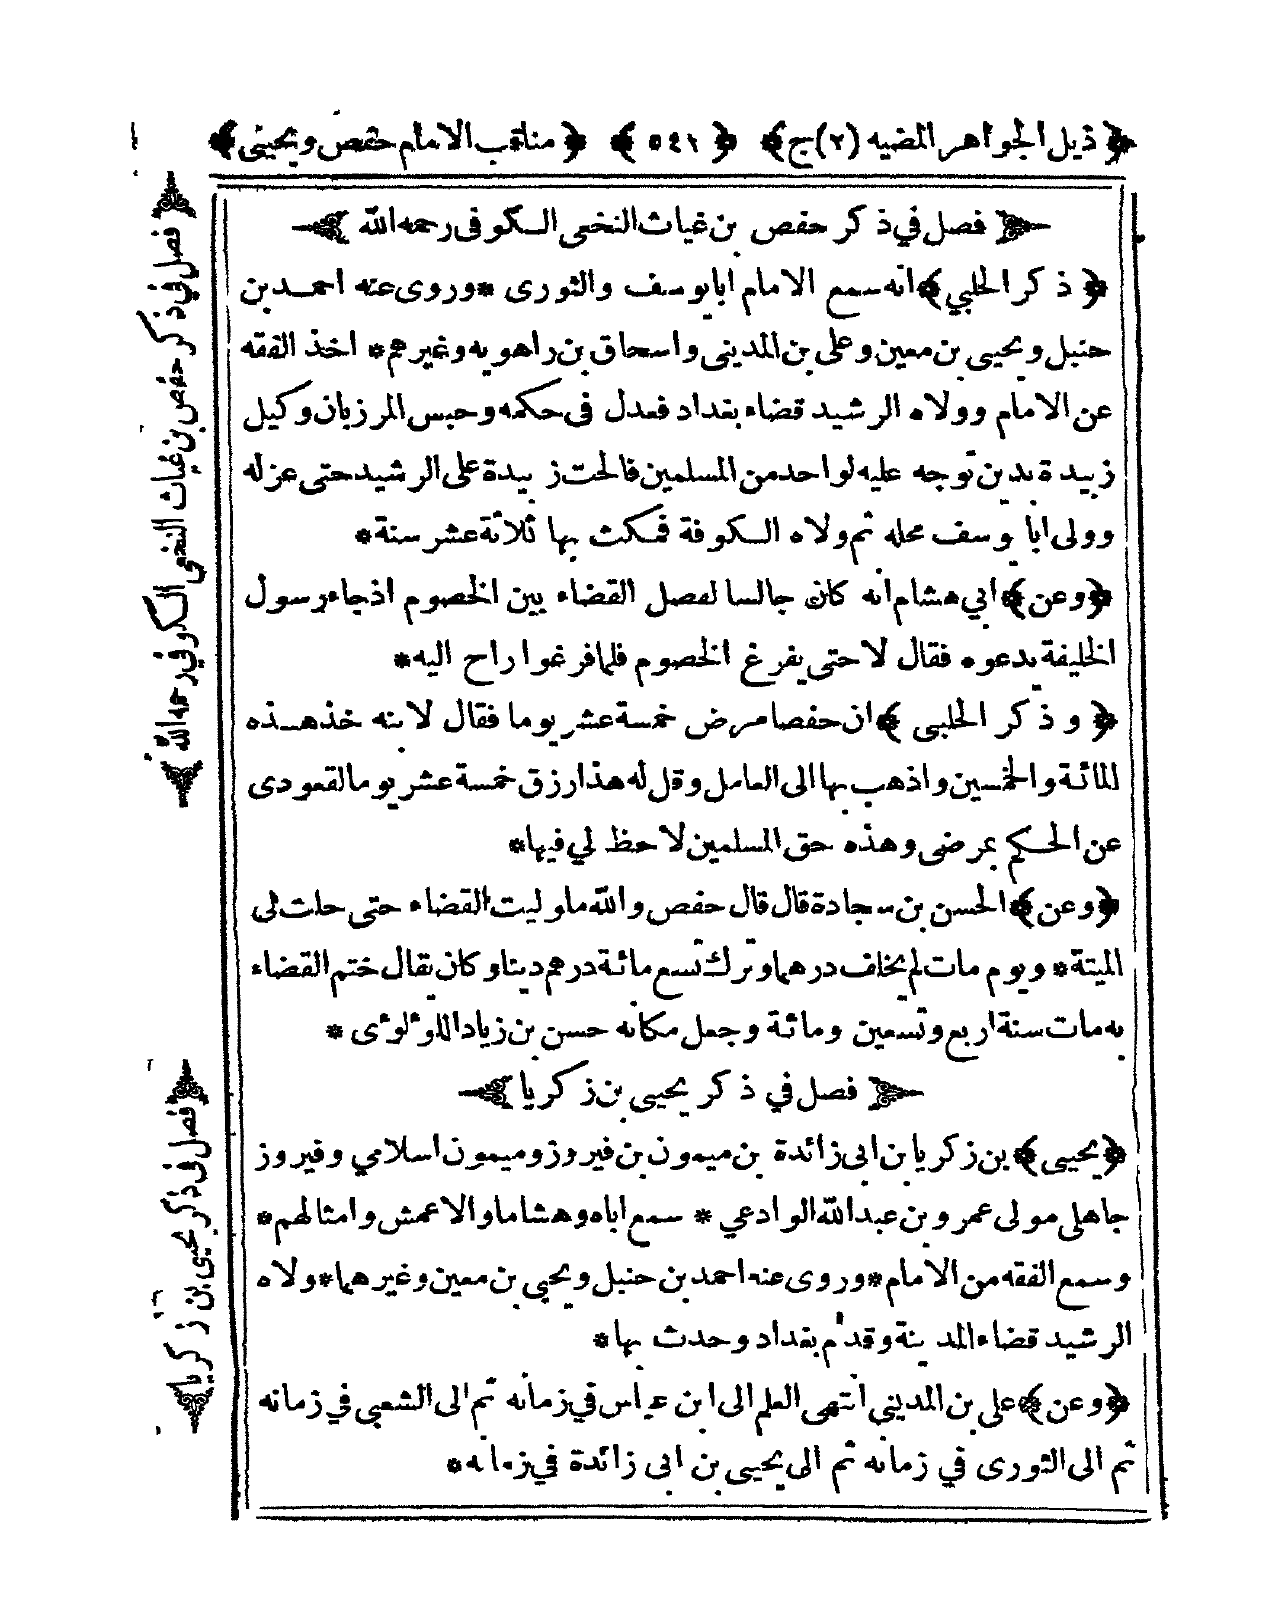 ﴿ ذيل الجواهر المضيه (٢) ج ﴾ ﴿ ٥٤١ ﴾ ﴿ مناقب الامام حفص ويحيى ﴾
فصل في ذكر حفص بن غياث النخعى الكوفى رحمه الله
﴿ ذكر الحلبي ﴾ انه سمع الامام ابا يوسف والثورى * وروى عنه احمد بن
حنبل ويحيى بن معين وعلى بن المدينى واسحاق بن راهويه وغيرهم * اخذ الفقه
عن الامام وولاه الرشيد قضاء بغداد فعدل فى حكمه وحبس المرزبان وكيل
زبيدة بدين توجه عليه لواحد من المسلمين فالحت زبيدة على الرشيد حتى عزله
وولى ابا يوسف محله ثم ولاه الكوفة فمكث بها ثلاثة عشر سنة *
﴿ وعن ﴾ ابي هشام انه كان جالسا لفصل القضاء بين الخصوم اذ جاء رسول
الخليفة يدعوه فقال لا حتى يفرغ الخصوم فلما فرغوا راح اليه *
﴿ وذكر الحلبى ﴾ ان حفصا مرض خمسة عشر يوما فقال لابنه خذ هذه
المائة والخمسين واذهب بها الى العامل وقل له هذا رزق خمسة عشر يوما لقعودى
عن الحكم بمرضى وهذه حق المسلمين لاحظ لي فيها *
﴿ وعن ﴾ الحسن بن سجادة قال قال حفص والله ما وليت القضاء حتى حلت لى
الميتة * ويوم مات لم يخلف درهما وترك تسع مائة درهم دينا وكان يقال ختم القضاء
به مات سنة اربع وتسعين ومائة وجعل مكانه حسن بن زياد اللؤلؤى *
فصل في ذكر يحيى بن زكريا
﴿ يحيى ﴾ بن زكريا بن ابى زائدة بن ميمون بن فيروز وميمون اسلامي وفيروز
جاهلى مولى عمرو بن عبد الله الوادعي * سمع اباه وهشاما والاعمش وامثالهم *
وسمع الفقه من الامام * وروى عنه احمد بن حنبل ويحيى بن معين وغيرهما * ولاه
الرشيد قضاء المدينة وقدم بغداد وحدث بها *
﴿ وعن ﴾ على بن المديني انتهى العلم الى ابن عباس في زمانه ثم الى الشعبي في زمانه
ثم الى الثورى في زمانه ثم الى يحيى بن ابى زائدة في زمانه *
فصل في ذكر حفص بن غياث النخعى الكوفي رحمه الله
فصل فى ذكر يحيى بن زكريا